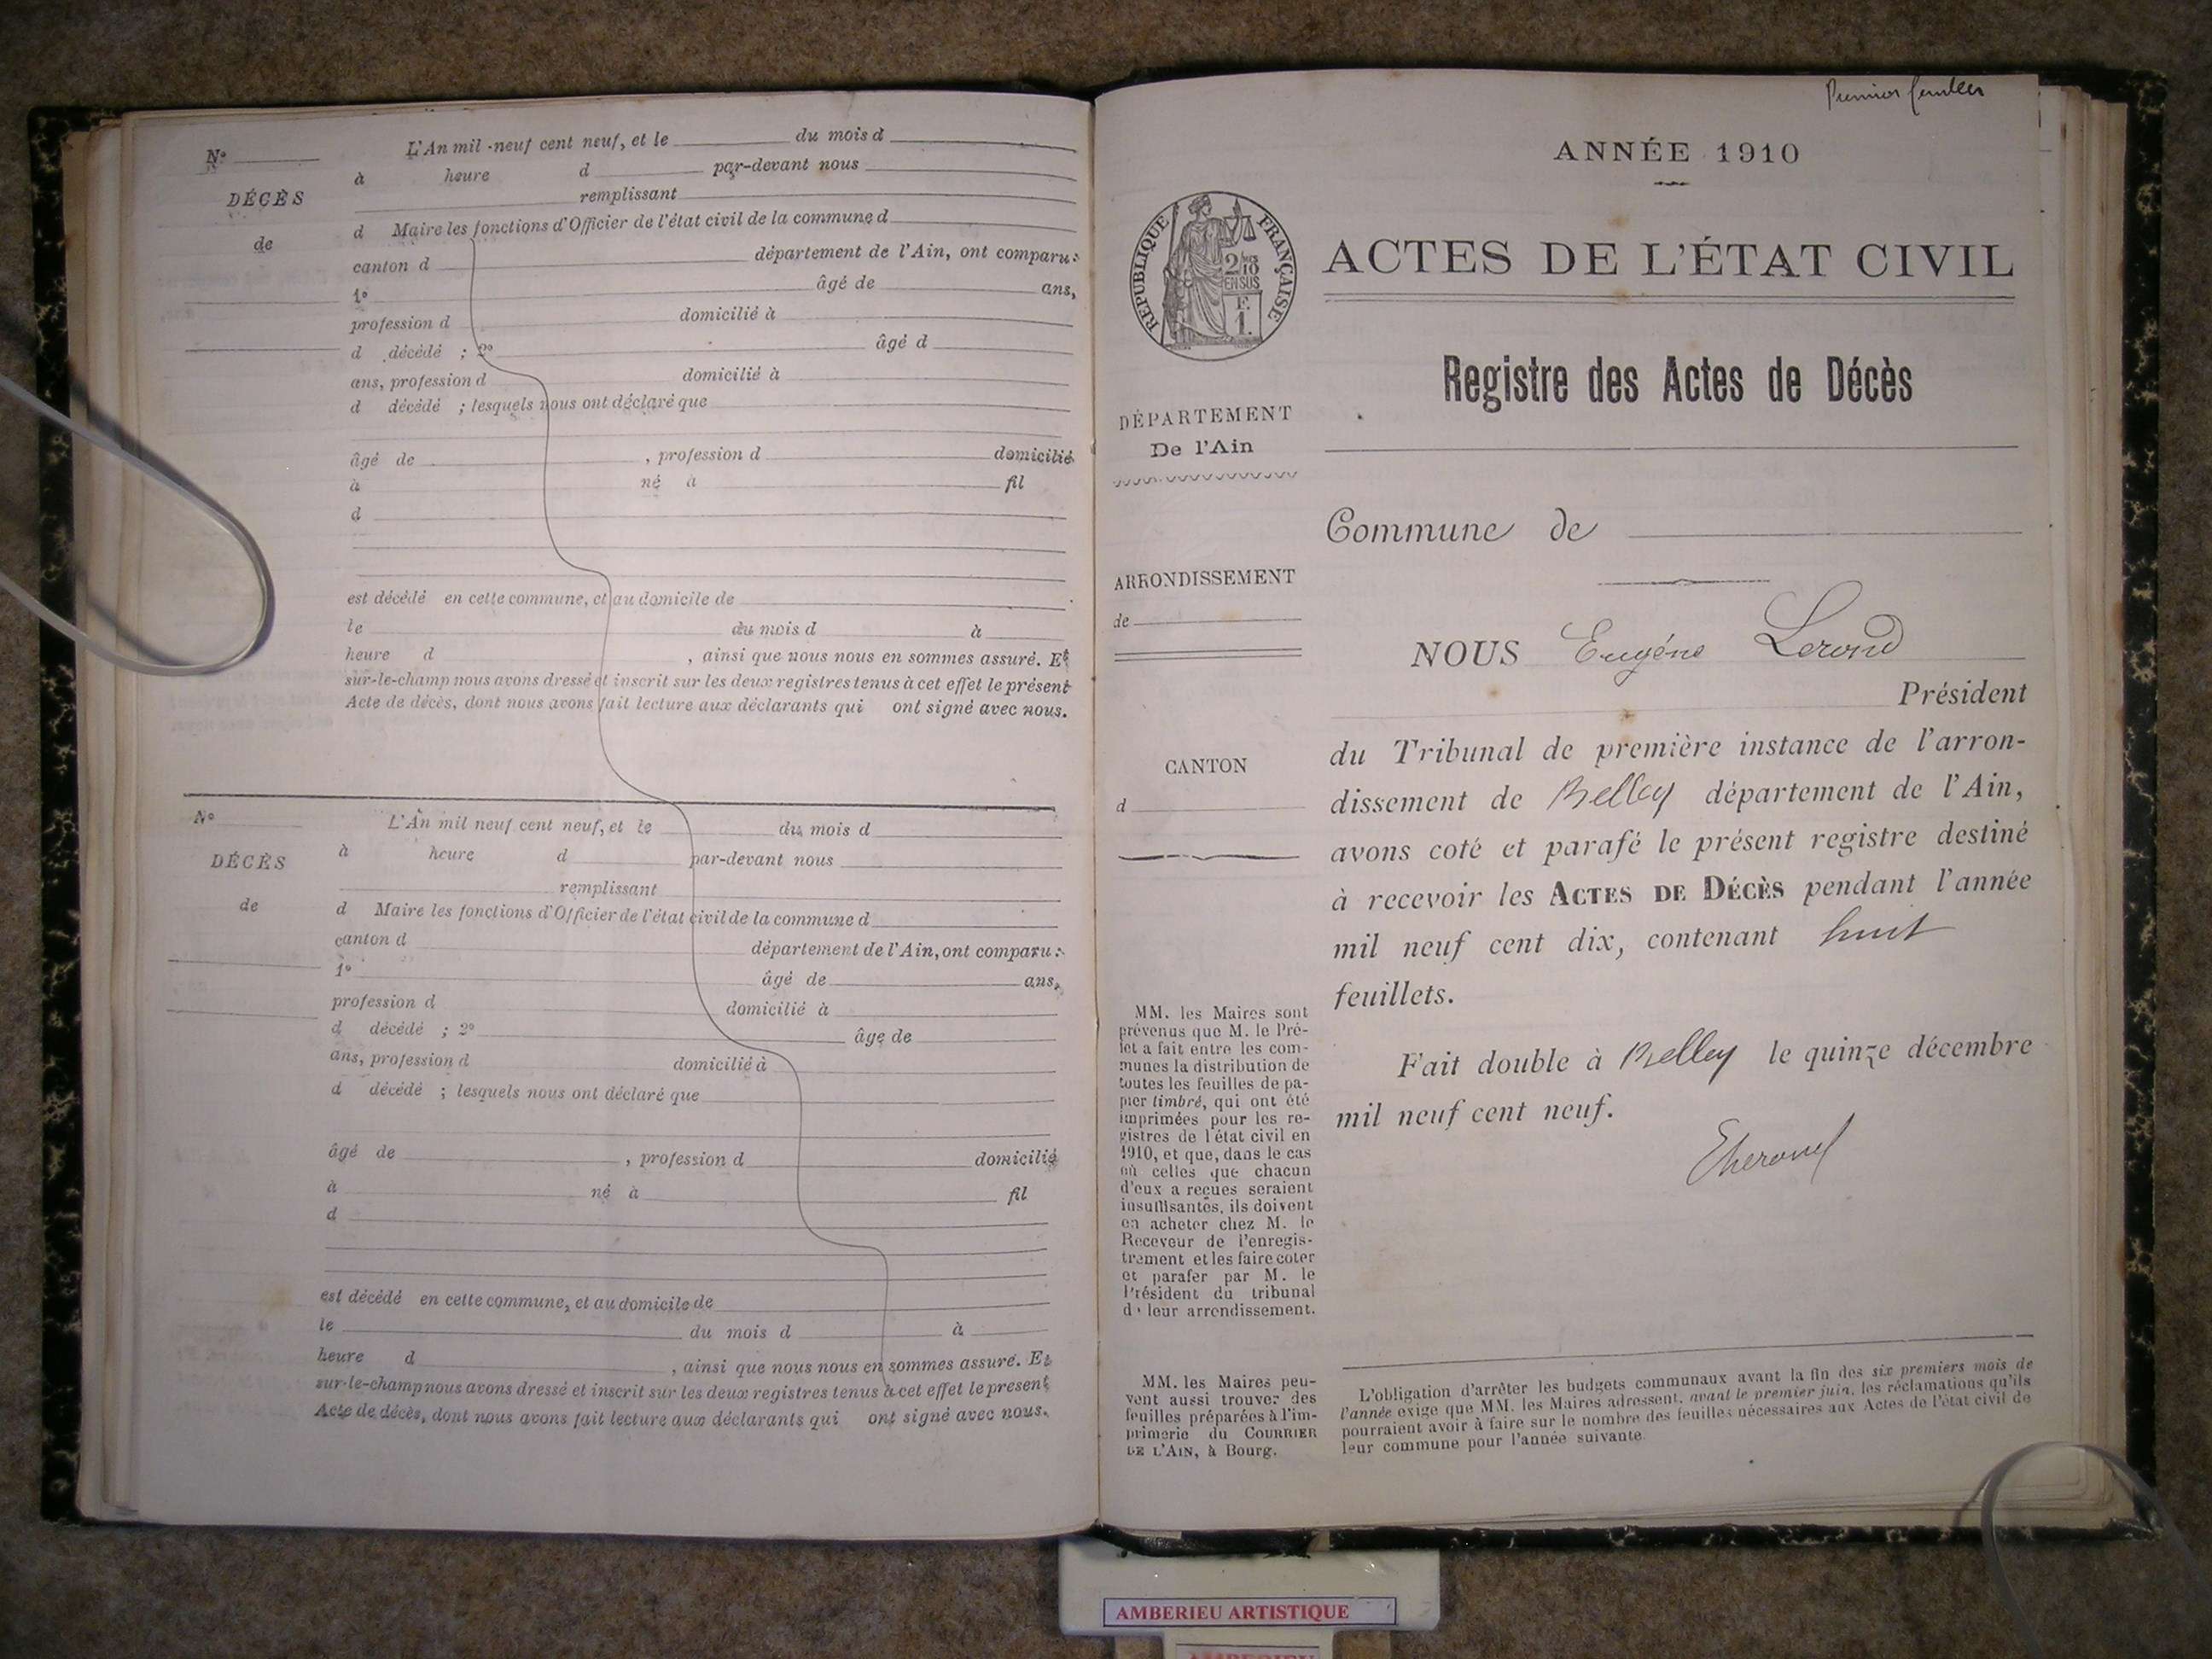 N°
DÉCÈS
de
L'An mil neuf cent neuf, et le du mois d
à heure d par-devant nous
remplissant
d Maire les fonctions d'Officier de l'état civil de la commune d
canton d département de l'Ain, ont comparu :
1° âgé de ans,
profession d domicilié à
d décédé ; 2° âgé d
ans, profession d domicilié à
d décédé ; lesquels nous ont déclaré que
âgé de , profession d domicilié
à né à fil
d
est décédé en cette commune, et au domicile de
le du mois d à
heure d , ainsi que nous nous en sommes assuré. Et
sur-le-champ nous avons dressé et inscrit sur les deux registres tenus à cet effet le présent
Acte de décès, dont nous avons fait lecture aux déclarants qui ont signé avec nous.
N°
DÉCÈS
de
L'An mil neuf cent neuf, et le du mois d
à heure d par-devant nous
remplissant
d Maire les fonctions d'Officier de l'état civil de la commune d
canton d département de l'Ain, ont comparu :
1° âgé de ans,
profession d domicilié à
d décédé ; 2° âge de
ans, profession d domicilié à
d décédé ; lesquels nous ont déclaré que
âgé de , profession d domicilié
à né à fil
d
est décédé en cette commune, et au domicile de
le du mois d à
heure d , ainsi que nous nous en sommes assuré. Et
sur-le-champ nous avons dressé et inscrit sur les deux registres tenus à cet effet le present
Acte de décès, dont nous avons fait lecture aux déclarants qui ont signé avec nous.
Premier
ANNÉE 1910
RÉPUBLIQUE FRANÇAISE
2/10
EN SUS
F.
1.
ACTES DE L'ÉTAT CIVIL
Registre des Actes de Décès
DÉPARTEMENT
De l'Ain
ARRONDISSEMENT
de
CANTON
d
Commune de
NOUS Eugéne Lerond
Président
du Tribunal de première instance de l'arron-
dissement de Belley département de l'Ain,
avons coté et parafé le présent registre destiné
à recevoir les ACTES DE DÉCÈS pendant l'année
mil neuf cent dix, contenant huit
feuillets.
Fait double à Belley le quinze décembre
mil neuf cent neuf.
MM. les Maires sont
prévenus que M. le Pré-
fet a fait entre les com-
munes la distribution de
toutes les feuilles de pa-
pier timbré, qui ont été
imprimées pour les re-
gistres de l'état civil en
1910, et que, dans le cas
où celles que chacun
d'eux a reçues seraient
insuffisantes, ils doivent
en acheter chez M. le
Receveur de l'enregis-
trement et les faire coter
et parafer par M. le
Président du tribunal
de leur arrondissement.
MM. les Maires peu-
vent aussi trouver des
feuilles préparées à l'im-
primerie du COURRIER
DE L'AIN, à Bourg.
L'obligation d'arrêter les budgets communaux avant la fin des six premiers mois de
l'année exige que MM. les Maires adressent, avant le premier juin, les réclamations qu'ils
pourraient avoir à faire sur le nombre des feuilles nécessaires aux Actes de l'état civil de
leur commune pour l'année suivante.
AMBERIEU ARTISTIQUE
AMBERIEU